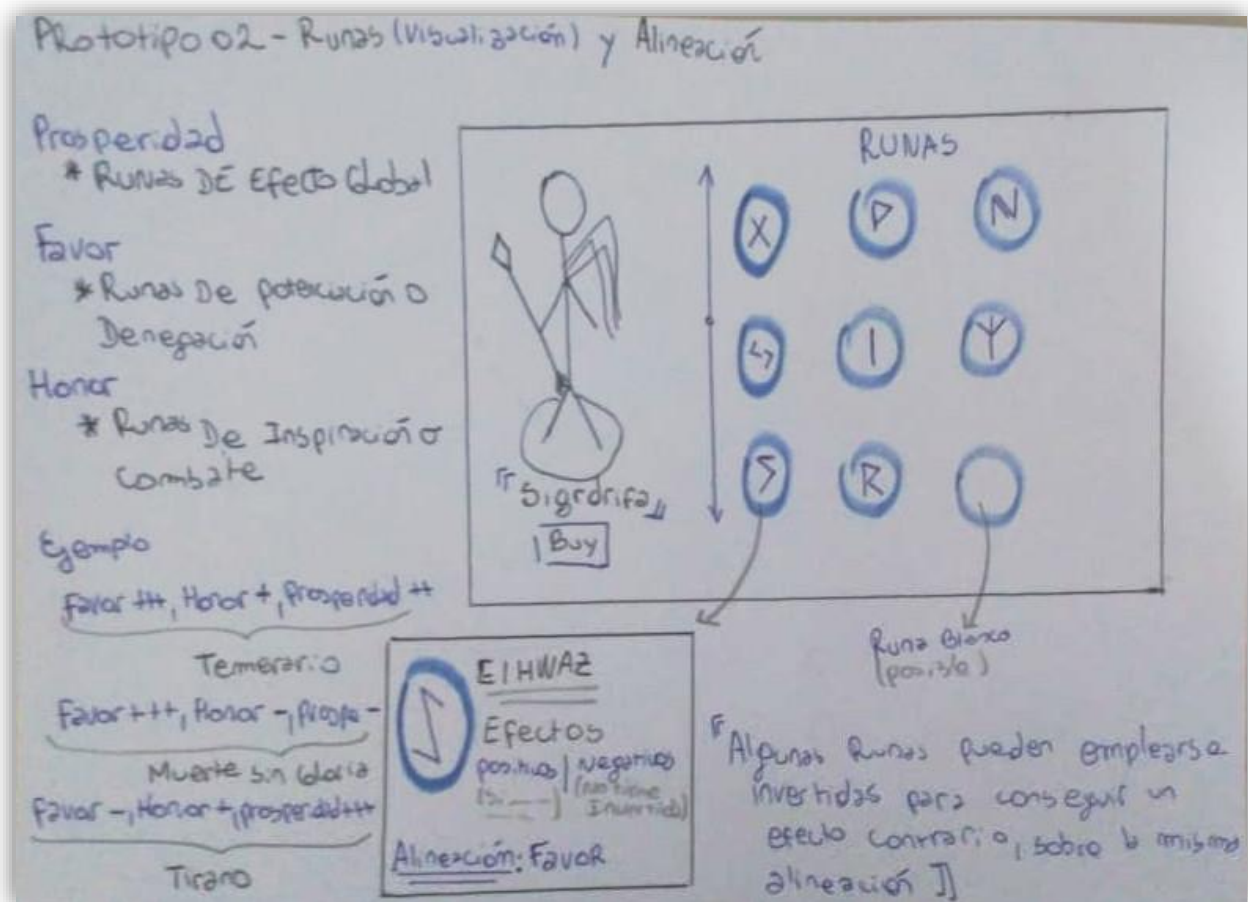 PROtotipo 02 - Runas (Visualización) y Alineación
Prosperidad
* RUNAS DE Efecto Global
Favor
* Runas De potenciación o
Denegación
Honor
* Runas De Inspiración o
Combate
Ejemplo
Favor +++, Honor +, Prosperidad ++
Temerario
Favor +++, Honor -, Prospe -
Muerte sin Gloria
Favor -, Honor +, prosperidad +++
Tirano
RUNAS
X P N
ϟ I Y
S R
"Sigrdrifa"
Buy
EIHWAZ
Efectos
positivos | Negativos
(Si ___) (No tiene
Invertida)
Alineación: FavoR
Runa Blanca
(posible)
『Algunas Runas pueden emplearse
invertidas para conseguir un
efecto contrario, sobre la misma
alineación』